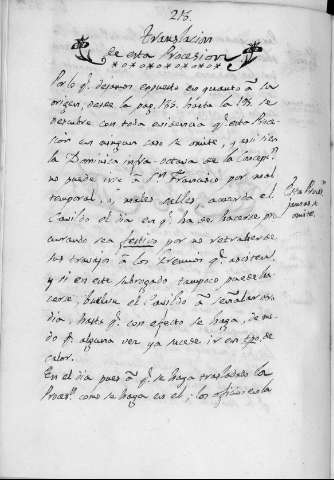 215.
Translacion
de esta Procesion
Por lo q.e dejamos expuesto en quanto â su
origen, desde la pag. 185. hasta la 198. se
descubre con toda evidencia q.e esta Proce-
sion en ningun caso se omite, y asi si en
la Dominica infra-octava de la Concep.n
no puede irse â S.n Francisco por mal
temporal, acuerda el
Cavildo el dia en q.e ha de hacerse pro
curando sea festivo por no retraherse de
sus trabajos â los Gremios q.e asisten,
y si en este subrogado tampoco puede ha
cerse, buelve el Cavildo â señalar otro
dia, hasta q.e con efecto se haga, de mo-
do q.e alguna vez ya sucede ir en tpo. de
calor.
En el dia pues â q.e se haya trasladado la
Proces.n como se haga en el, los oficios en la
Esta Proc.n
jamas se
omite.